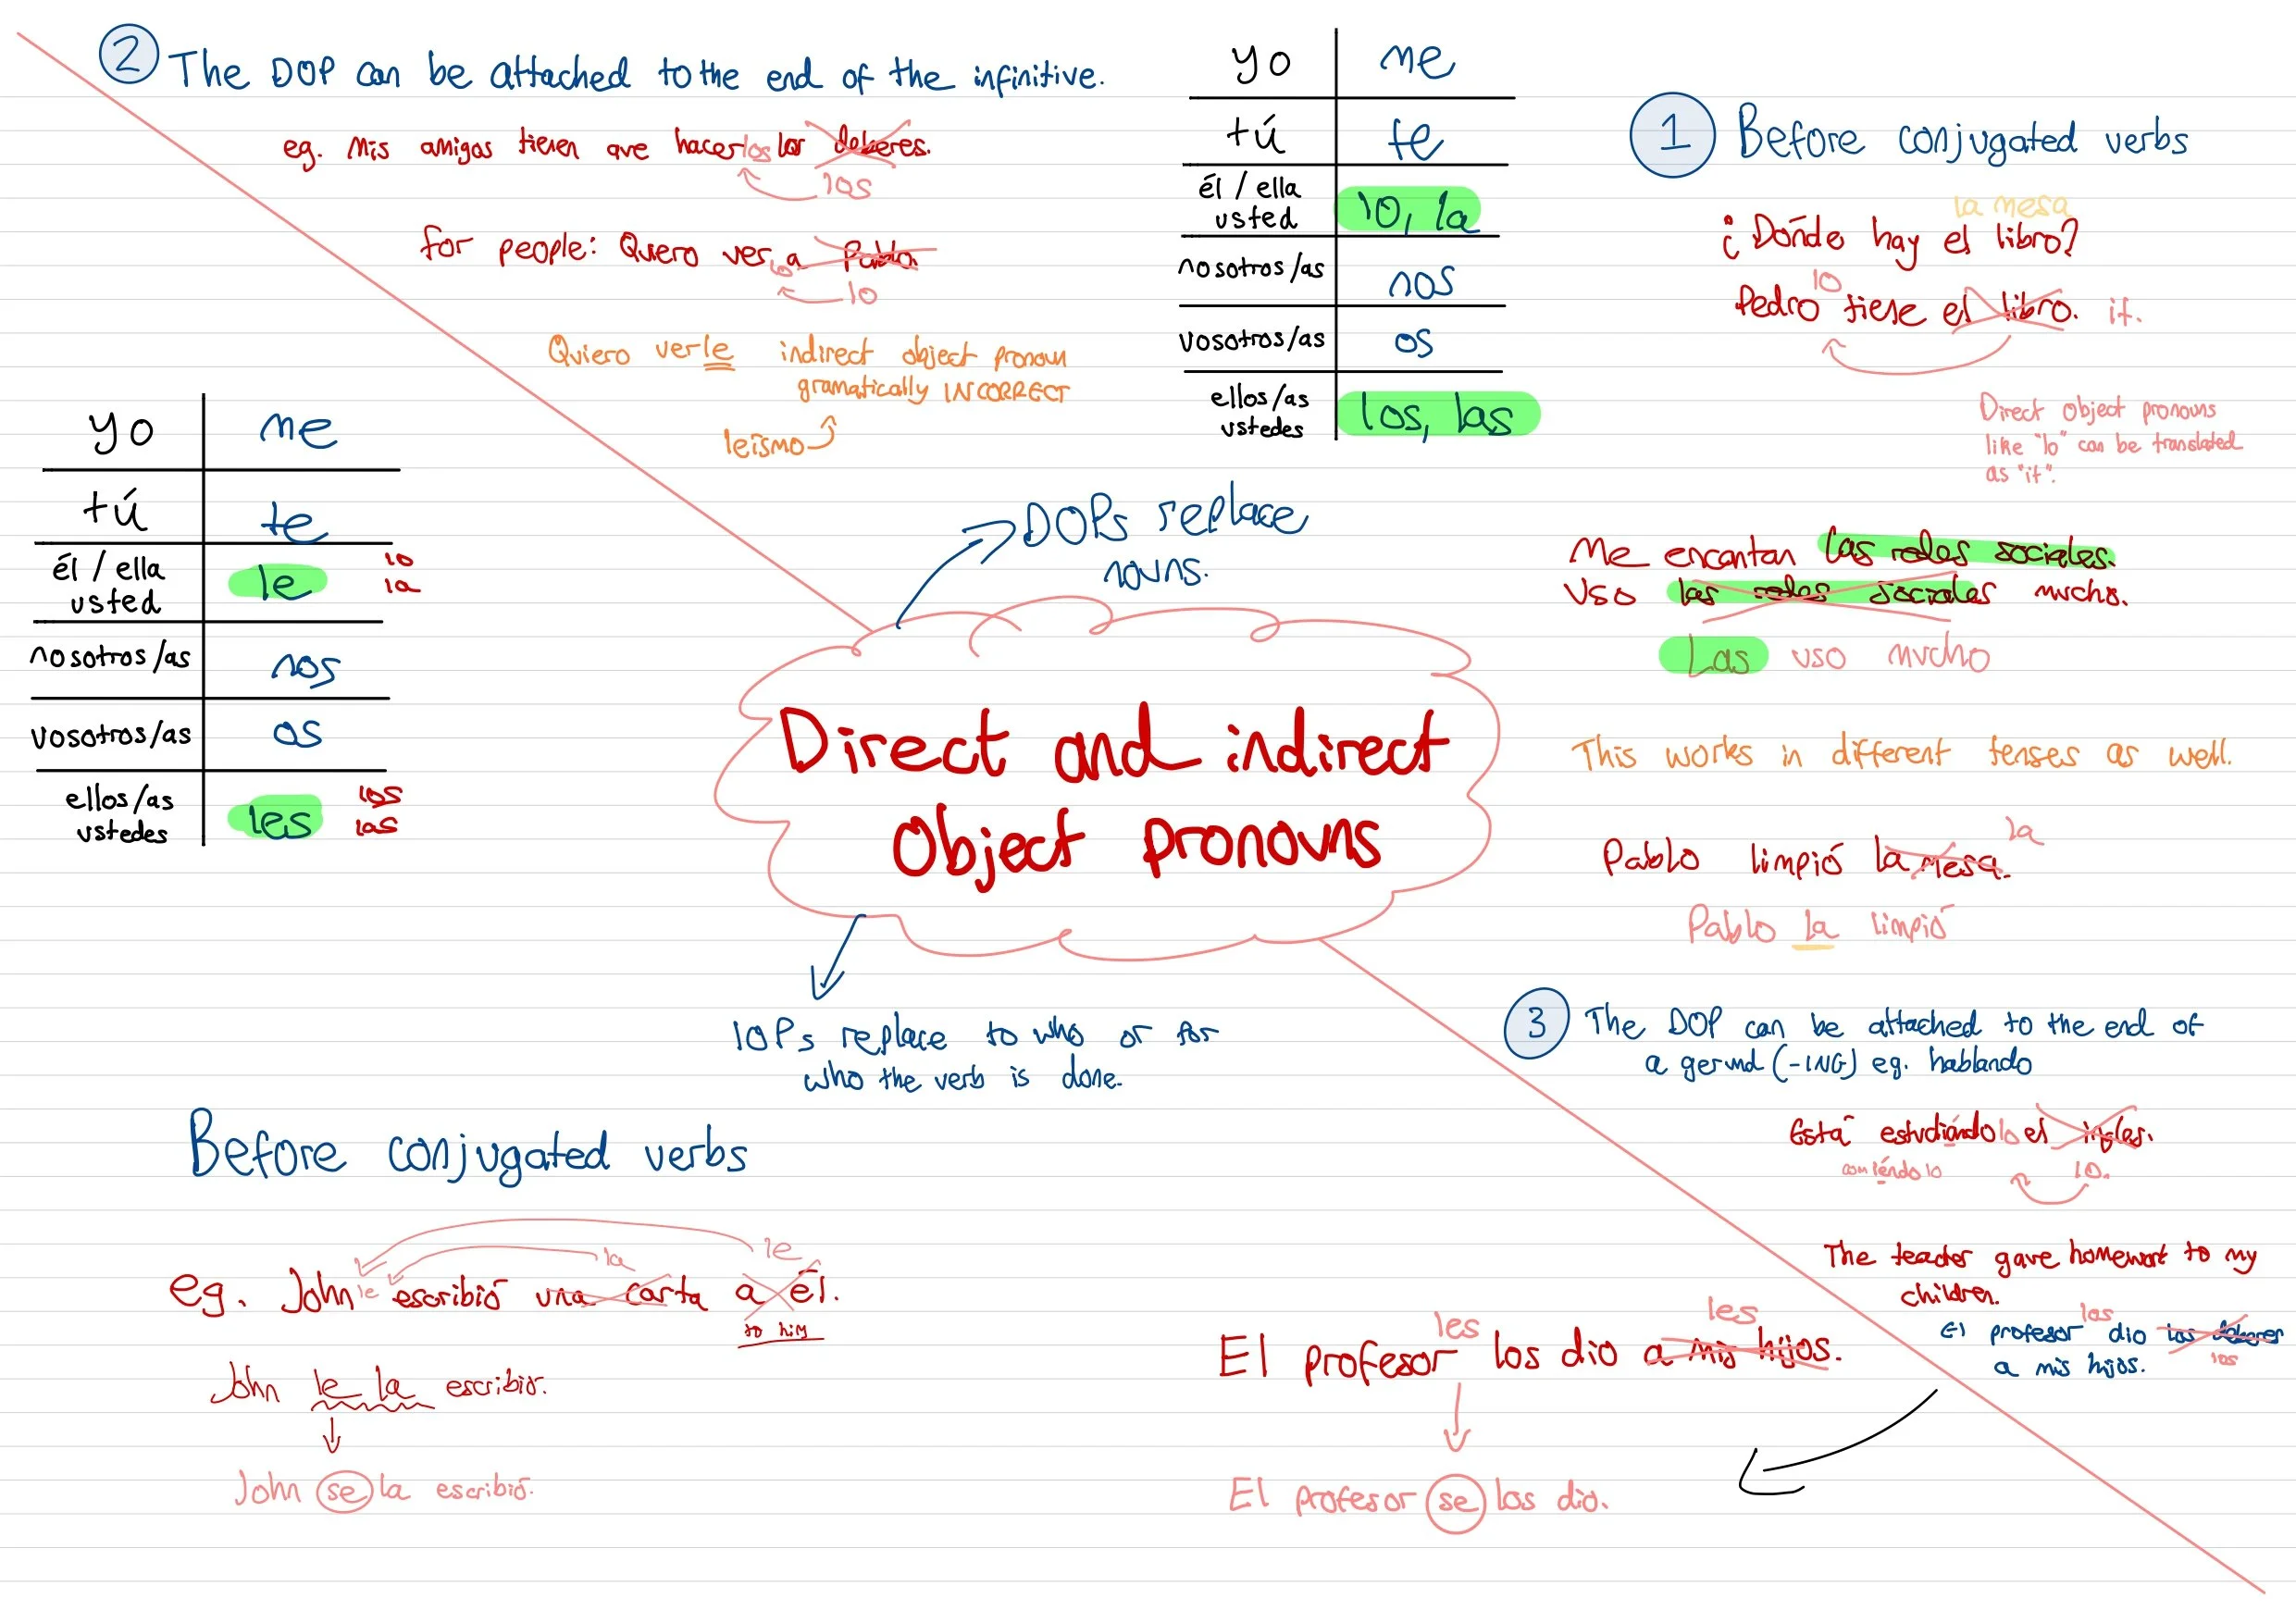 2 The DOP can be attached to the end of the infinitive.
eg. Mis amigos tienen que hacerlos los deberes.
los
for people: Quiero ver lo a Pablo.
lo
Quiero verle indirect object pronoun
gramatically INCORRECT
leísmo
yo me
tú te
él / ella
usted lo, la
nosotros/as nos
vosotros/as os
ellos/as
ustedes los, las
1 Before conjugated verbs
la mesa
¿Dónde hay el libro?
lo
Pedro tiene el libro. it.
Direct object pronouns
like "lo" can be translated
as "it".
Me encantan las redes sociales.
Uso las redes sociales mucho.
Las uso mucho
This works in different tenses as well.
la
Pablo limpió la mesa.
Pablo la limpió
yo me
tú te
él / ella
usted le lo
la
nosotros/as nos
vosotros/as os
ellos/as
ustedes les los
las
DOPs replace
nouns.
Direct and indirect
Object pronouns
IOPs replace to who or for
who the verb is done.
3 The DOP can be attached to the end of
a gerund (-ING) eg. hablando
Está estudiándolo el ingles.
comiéndolo lo.
The teacher gave homework to my
children.
los
El profesor dio los deberes
los
a mis hijos.
Before conjugated verbs
la le
eg. John le escribió una carta a él.
to him
John le la escribió.
John se la escribió.
les les
El profesor los dio a mis hijos.
El profesor se los dio.